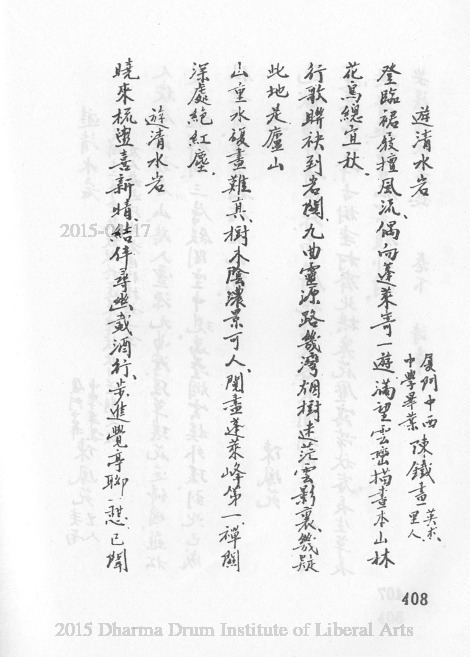 遊清水岩
厦門中西
中學畢業 陳鐵畫 英
里人
登臨裙屐擅風流偶向蓬萊奇一遊滿望雲巒描畫本山林
花鳥總宜秋
行歌聯袂到岩關九曲靈源路幾灣烟樹迷茫雲影裏幾疑
此地是廬山
山重水複畫難真樹木陰濃景可人閱盡蓬萊峰第一禪關
深處絕紅塵
遊清水岩
曉來梳盥喜新晴結伴尋幽載酒行步進覺亭聊一憇已聞
408
2015-04-17
2015 Dharma Drum Institute of Liberal Arts